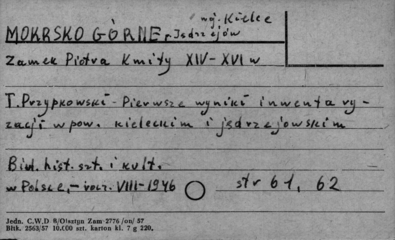 woj. Kielce
MOKRSKO GÓRNE, p. Jędrzejów
Zamek Piotra Kmity XIV-XVI w
T. Przypkowski - Pierwsze wyniki inwentary-
zacji w pow. kieleckim i jędrzejowskim
Biul. hist. szt. i kult.
w Polsce, - rocz. VIII-1946 str 61, 62
Jedn. C.W.D 8/Olsztyn Zam 2776 /on/ 57
Bltk. 2563/57 10.000 szt. karton kl. 7 g 220.